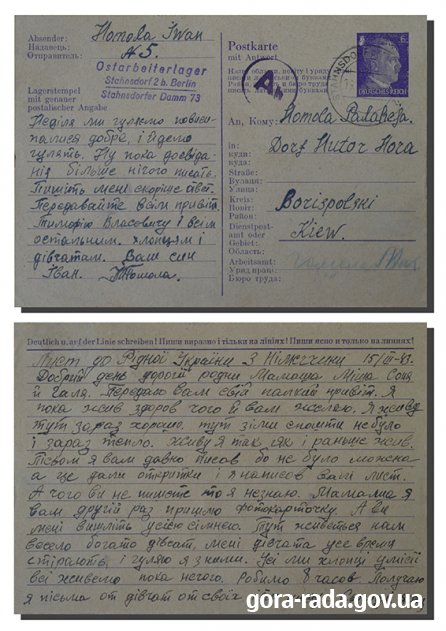 Absender:
Надавець:
Отправитель:
Homola Iwan
№5.
Ostarbeiterlager
Stahnsdorf 2 b. Berlin
Stahnsdorfer Damm 73
Lagerstempel
mit genauer
postalischer Angabe
Неділя ми гуляємо повиси-
палися добре, і йдемо
гулять. Ну пока досвіда-
нія більше нічого писать.
Пишіть мені скоріше отвєт.
Передавайте всім привіт
Тимофію Власовичу і всім
остальним. хлопцям і
дівчатам. Ваш син
Іван. Гомола.
Postkarte
mit Antwort
Ab
DEUTSCHES REICH
6
An, Кому: Homola Palaheja.
in
куди:
куда:
Dorf Hutor Hora
Straße:
Вулиця:
Улица:
Kreis:
Повіт:
Район:
Borispolski
Dienstpost-
amt oder
Gebiet:
Область:
Kiew.
Arbeitsamt:
Уряд праці:
Бюро труда:
Deutlich u. auf der Linie schreiben! Пиши виразно і тільки на лініях! Пиши ясно и только на линиях!
Лист до Рідної України З Німеччини 15/III-43.
Добрий день дорогі родни Мамаша Міша Соня
й Галя. Передаю вам свій палкий привіт. Я
пока жив здоров чого й вам желаю. Я живу
тут зараз хорошо, тут зіми почти не було
і зараз тепло. живу я так як і раньше жив.
Пісьом я вам давно писав бо не було можна
а це дали откритки і я написав вам лист.
А чого ви не пишете то я незнаю. Мамаша я
вам другий раз пришлю фотокарточку. А ви
мені вишліть усією сімнею. Тут живеться нам
весело богато дівчат, мені дівчата усе время
стірають, і гуляю я з ними. Усі ми хлопці
всі живемо пока нечого. Робимо 8 часов Получаю
я пісьма от дівчат от своїх
gora-rada.gov.ua